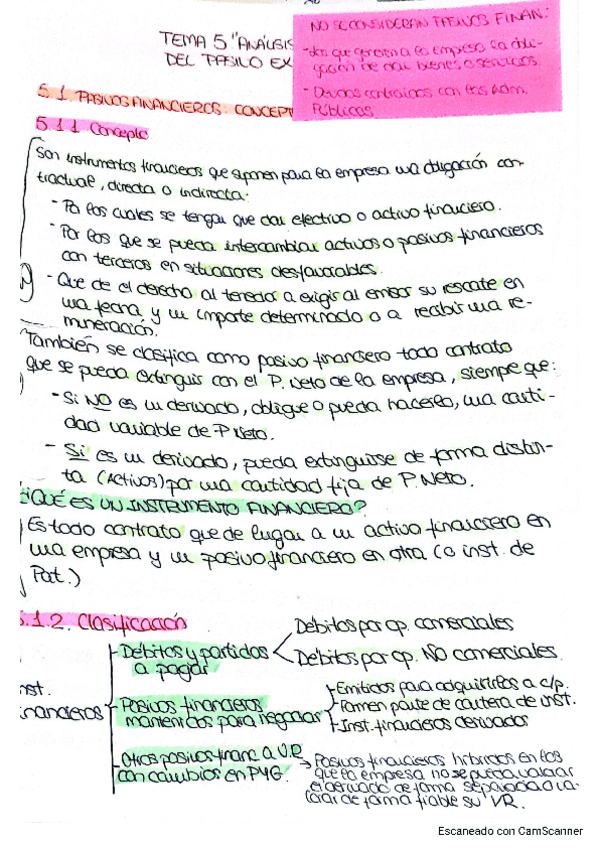 NO SE CONSIDERAN PASIVOS FINAN.:
-Los que generan a la empresa la obli-
gación de dar bienes o servicios.
- Deudas contraídas con las Adm.
Públicas.
TEMA 5: "ANÁLISIS
DEL PASIVO EX
5.1. PASIVOS FINANCIEROS. CONCEPT
5.1.1 Concepto
Son instrumentos financieros que suponen para la empresa una obligación con-
tractual, directa o indirecta:
- Por los cuales se tengan que dar efectivo o activo financiero.
- Por los que se pueda intercambiar activos o pasivos financieros
con terceros en situaciones desfavorables.
- Que de el derecho al tenedor a exigir al emisor su rescate en
una fecha y un importe determinado o a recibir una re-
muneración.
También se clasifica como pasivo financiero todo contrato
que se pueda extinguir con el P. Neto de la empresa, siempre que:
- Si NO es un derivado, obligue o pueda hacerlo, una canti-
dad variable de P Neto.
- Si es un derivado, pueda extinguirse de forma distin-
ta (Activos) por una cantidad fija de P. Neto.
¿QUÉ ES UN INSTRUMENTO FINANCIERO?
Es todo contrato que de lugar a un activo financiero en
una empresa y un pasivo financiero en otra (o inst. de
Pat.)
5.1.2. Clasificación
Débitos por op. comerciales
Débitos y partidas
a pagar
Débitos por op. NO comerciales.
Inst.
financieros
Pasivos financieros
mantenidos para negociar
Emitidos para adquirirlos a c/p.
Formen parte de cartera de inst.
Inst. financieros derivados
Otros pasivos financ a V.R
con cambios en PYG.
→ Pasivos financieros híbridos en los
que la empresa no se pueda valorar
el derivado de forma separada o
de forma fiable su VR.
Escaneado con CamScanner